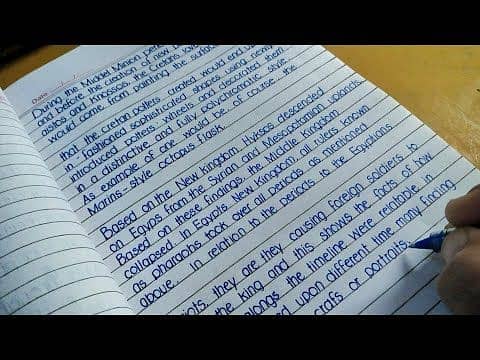 Date
During the Middel Minion peri
and before the creation of new p
astos and Knossos, the Cretans
would come from painting the surfac
that the cretan potters created would end up
in - fashioned sophisticated shapes using newly
introduced potters' wheels and decorated them
in a distinctive and fully polychromatic style.
As example of one would be of course the
Marins - style octopus flask.
Based on the New Kingdom, Hyksos descended
on Egypt from the Syrian and Mesopotamian uplands.
Based on these findings, the Middle Kingdom
collapsed. In Egypts New Kingdom, all rulers known
as pharaohs took over all periods as mentioned
above. In relation to the periods to the Egyptians
they are they causing foreign soldiers to
the king and this shows the facts of how
alongs the timeline were relatable in
upon different time many finding
crafs or portraits.